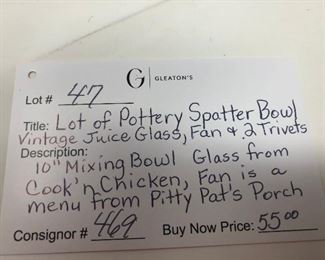 Lot # 47
G GLEATON'S
Title: Lot of Pottery Spatter Bowl
Vintage Juice Glass, Fan & 2 Trivets
Description:
10" Mixing Bowl Glass from
Cook'n Chicken, Fan is a
menu from Pitty Pat's Porch
Consignor # 469 Buy Now Price: 55.00